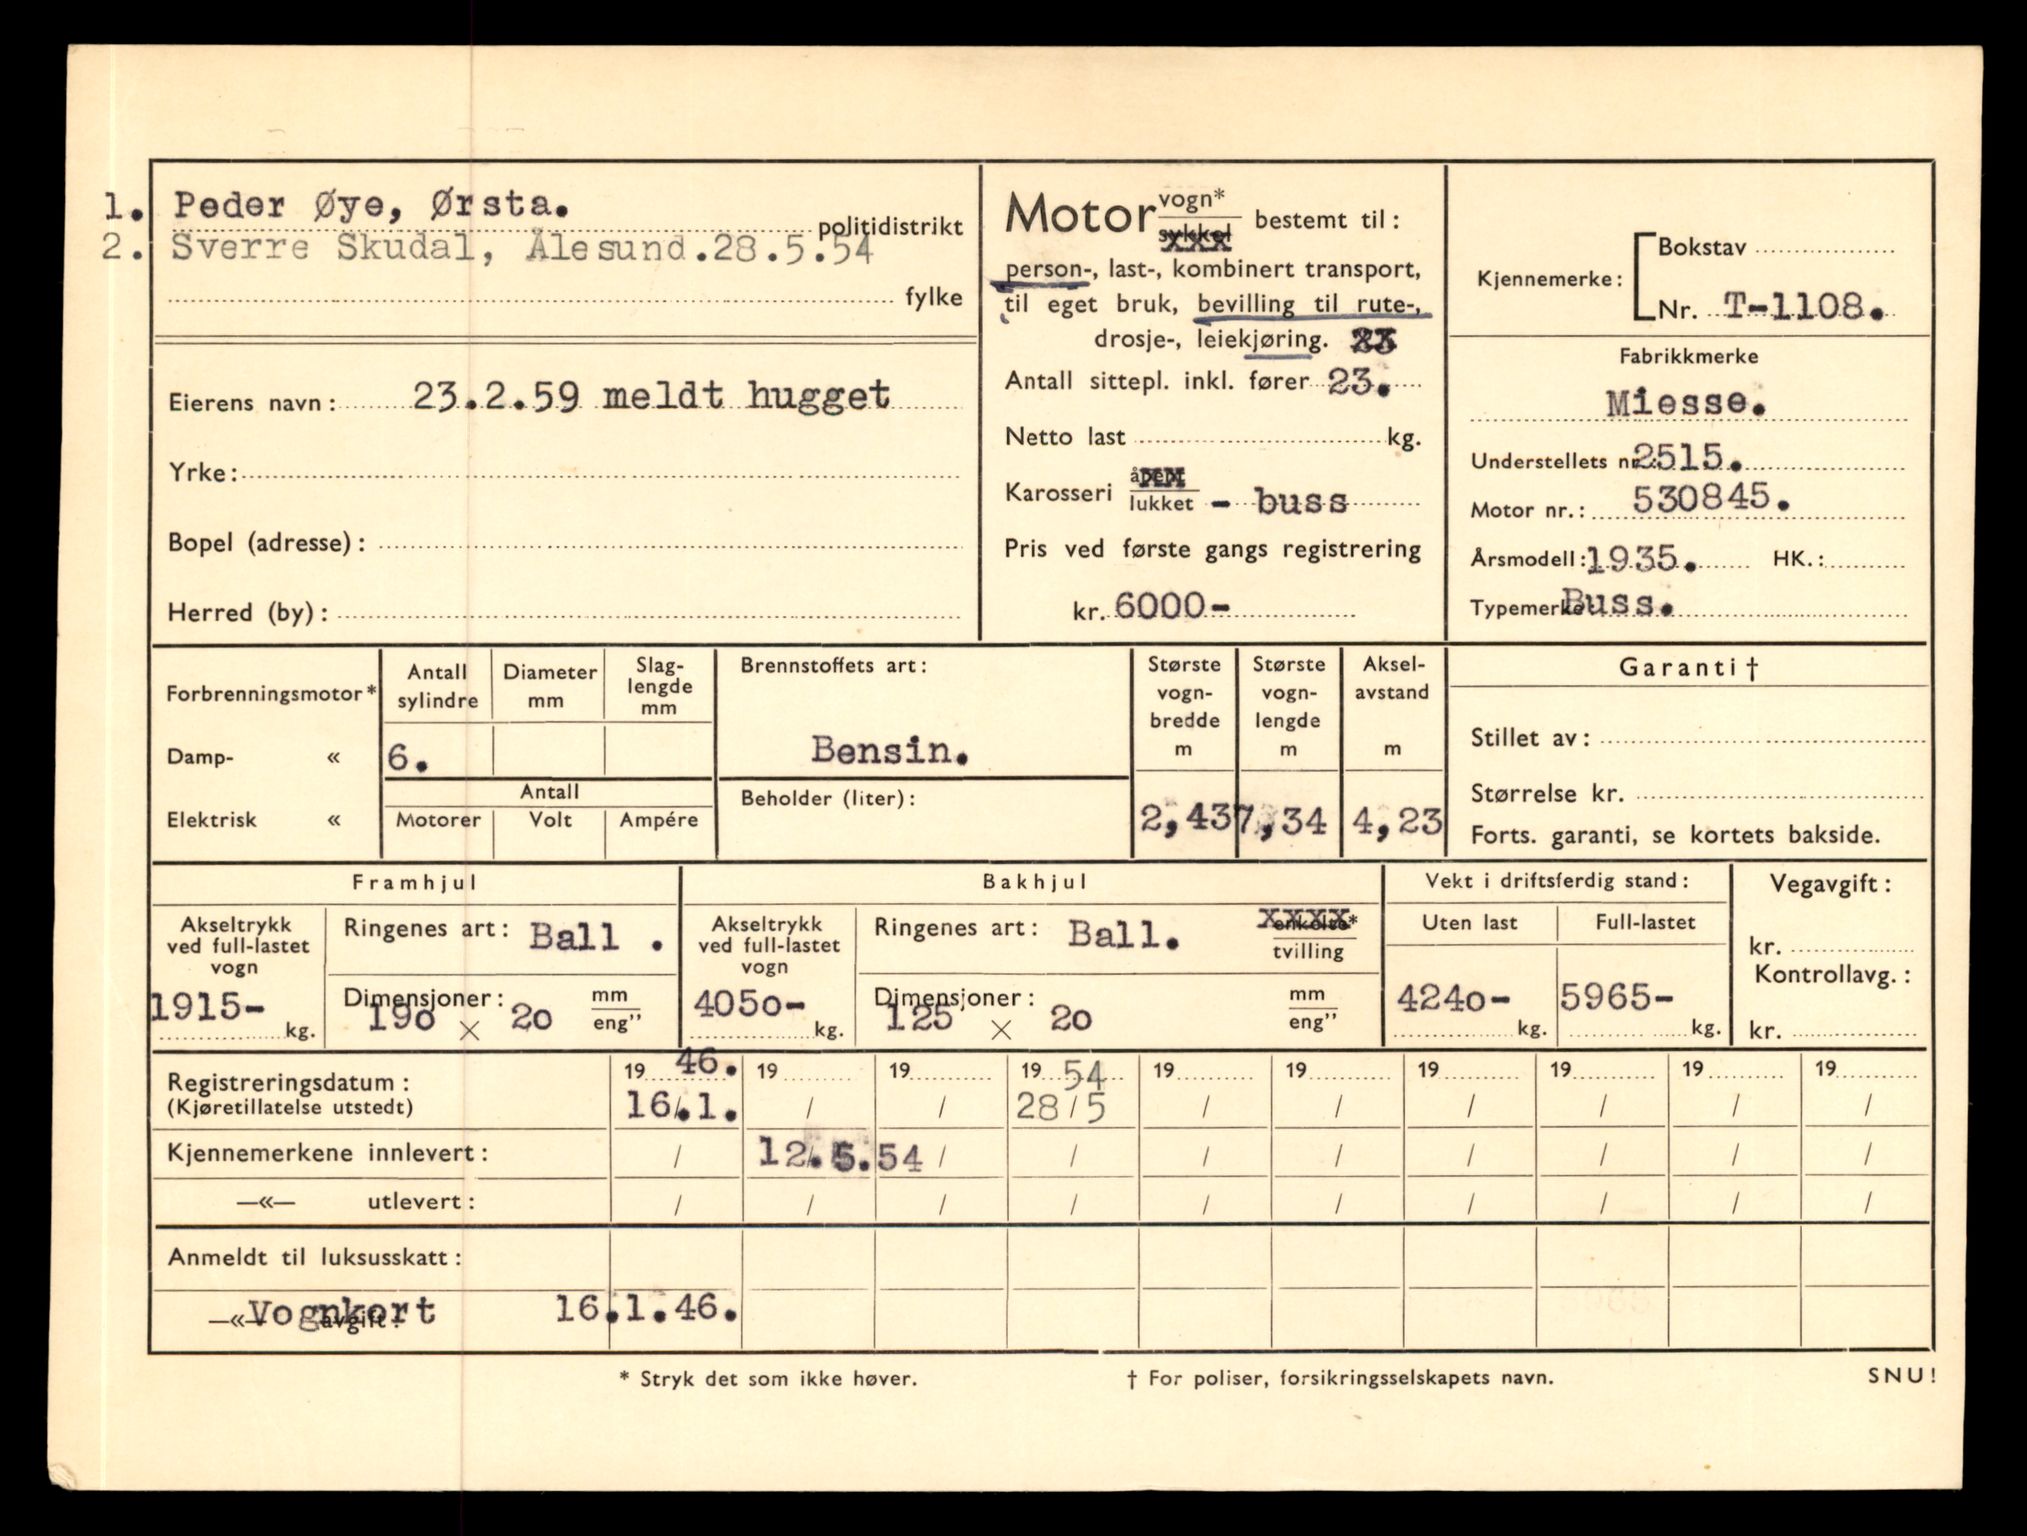 1. Peder Øye, Ørsta. politidistrikt
2. Sverre Skudal, Ålesund. 28.5.54
fylke
Eierens navn: 23.2.59 meldt hugget
Yrke:
Bopel (adresse):
Herred (by):
Motor vogn* sykkel bestemt til:
person-, last-, kombinert transport,
til eget bruk, bevilling til rute-,
drosje-, leiekjøring. 23
Antall sittepl. inkl. fører 23.
Netto last kg.
Karosseri åpent lukket - buss
Pris ved første gangs registrering
kr. 6000-
Kjennemerke: Bokstav
Nr. T-1108.
Fabrikkmerke
Miesse.
Understellets nr.: 2515.
Motor nr.: 530845.
Årsmodell: 1935. HK.:
Typemerke Buss.
Forbrenningsmotor*
Damp- «
Elektrisk «
Antall sylindre
6.
Diameter mm
Slag-
lengde
mm
Antall
Motorer Volt Ampére
Brennstoffets art:
Bensin.
Beholder (liter):
Største
vogn-
bredde
m
2,43
Største
vogn-
lengde
m
7,34
Aksel-
avstand
m
4,23
Garanti †
Stillet av:
Størrelse kr.
Forts. garanti, se kortets bakside.
Framhjul
Akseltrykk
ved full-lastet
vogn
1915- kg.
Ringenes art: Ball .
Dimensjoner: mm
190 × 20 eng”
Bakhjul
Akseltrykk
ved full-lastet
vogn
4050- kg.
Ringenes art: Ball. enkelte* tvilling
Dimensjoner: mm
125 × 20 eng”
Vekt i driftsferdig stand:
Uten last Full-lastet
4240- kg. 5965- kg.
Vegavgift:
kr.
Kontrollavg.:
kr.
Registreringsdatum: 19 46. 19 19 19 54 19 19 19 19 19 19
(Kjøretillatelse utstedt) 16/.1. / / 28/5 / / / / / /
Kjennemerkene innlevert: / 12.5.54 / / / / / / / /
—«— utlevert: / / / / / / / / / /
Anmeldt til luksusskatt:
—«— avgift: Vognkort 16.1.46.
* Stryk det som ikke høver. † For poliser, forsikringsselskapets navn. SNU!